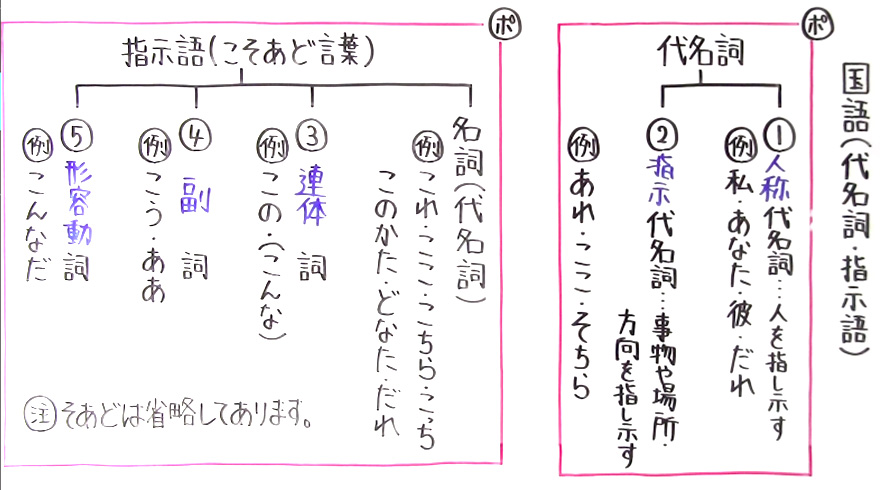 国語(代名詞・指示語)
ポ
代名詞
①人称代名詞…人を指し示す
例 私・あなた・彼・だれ
②指示代名詞…事物や場所・
方向を指し示す
例 あれ・ここ・そちら
ポ
指示語(こそあど言葉)
名詞(代名詞)
例 これ・ここ・こちら・こっち
このかた・どなた・だれ
③連体詞
例 この・(こんな)
④副詞
例 こう・ああ
⑤形容動詞
例 こんなだ
注 そあどは省略してあります。